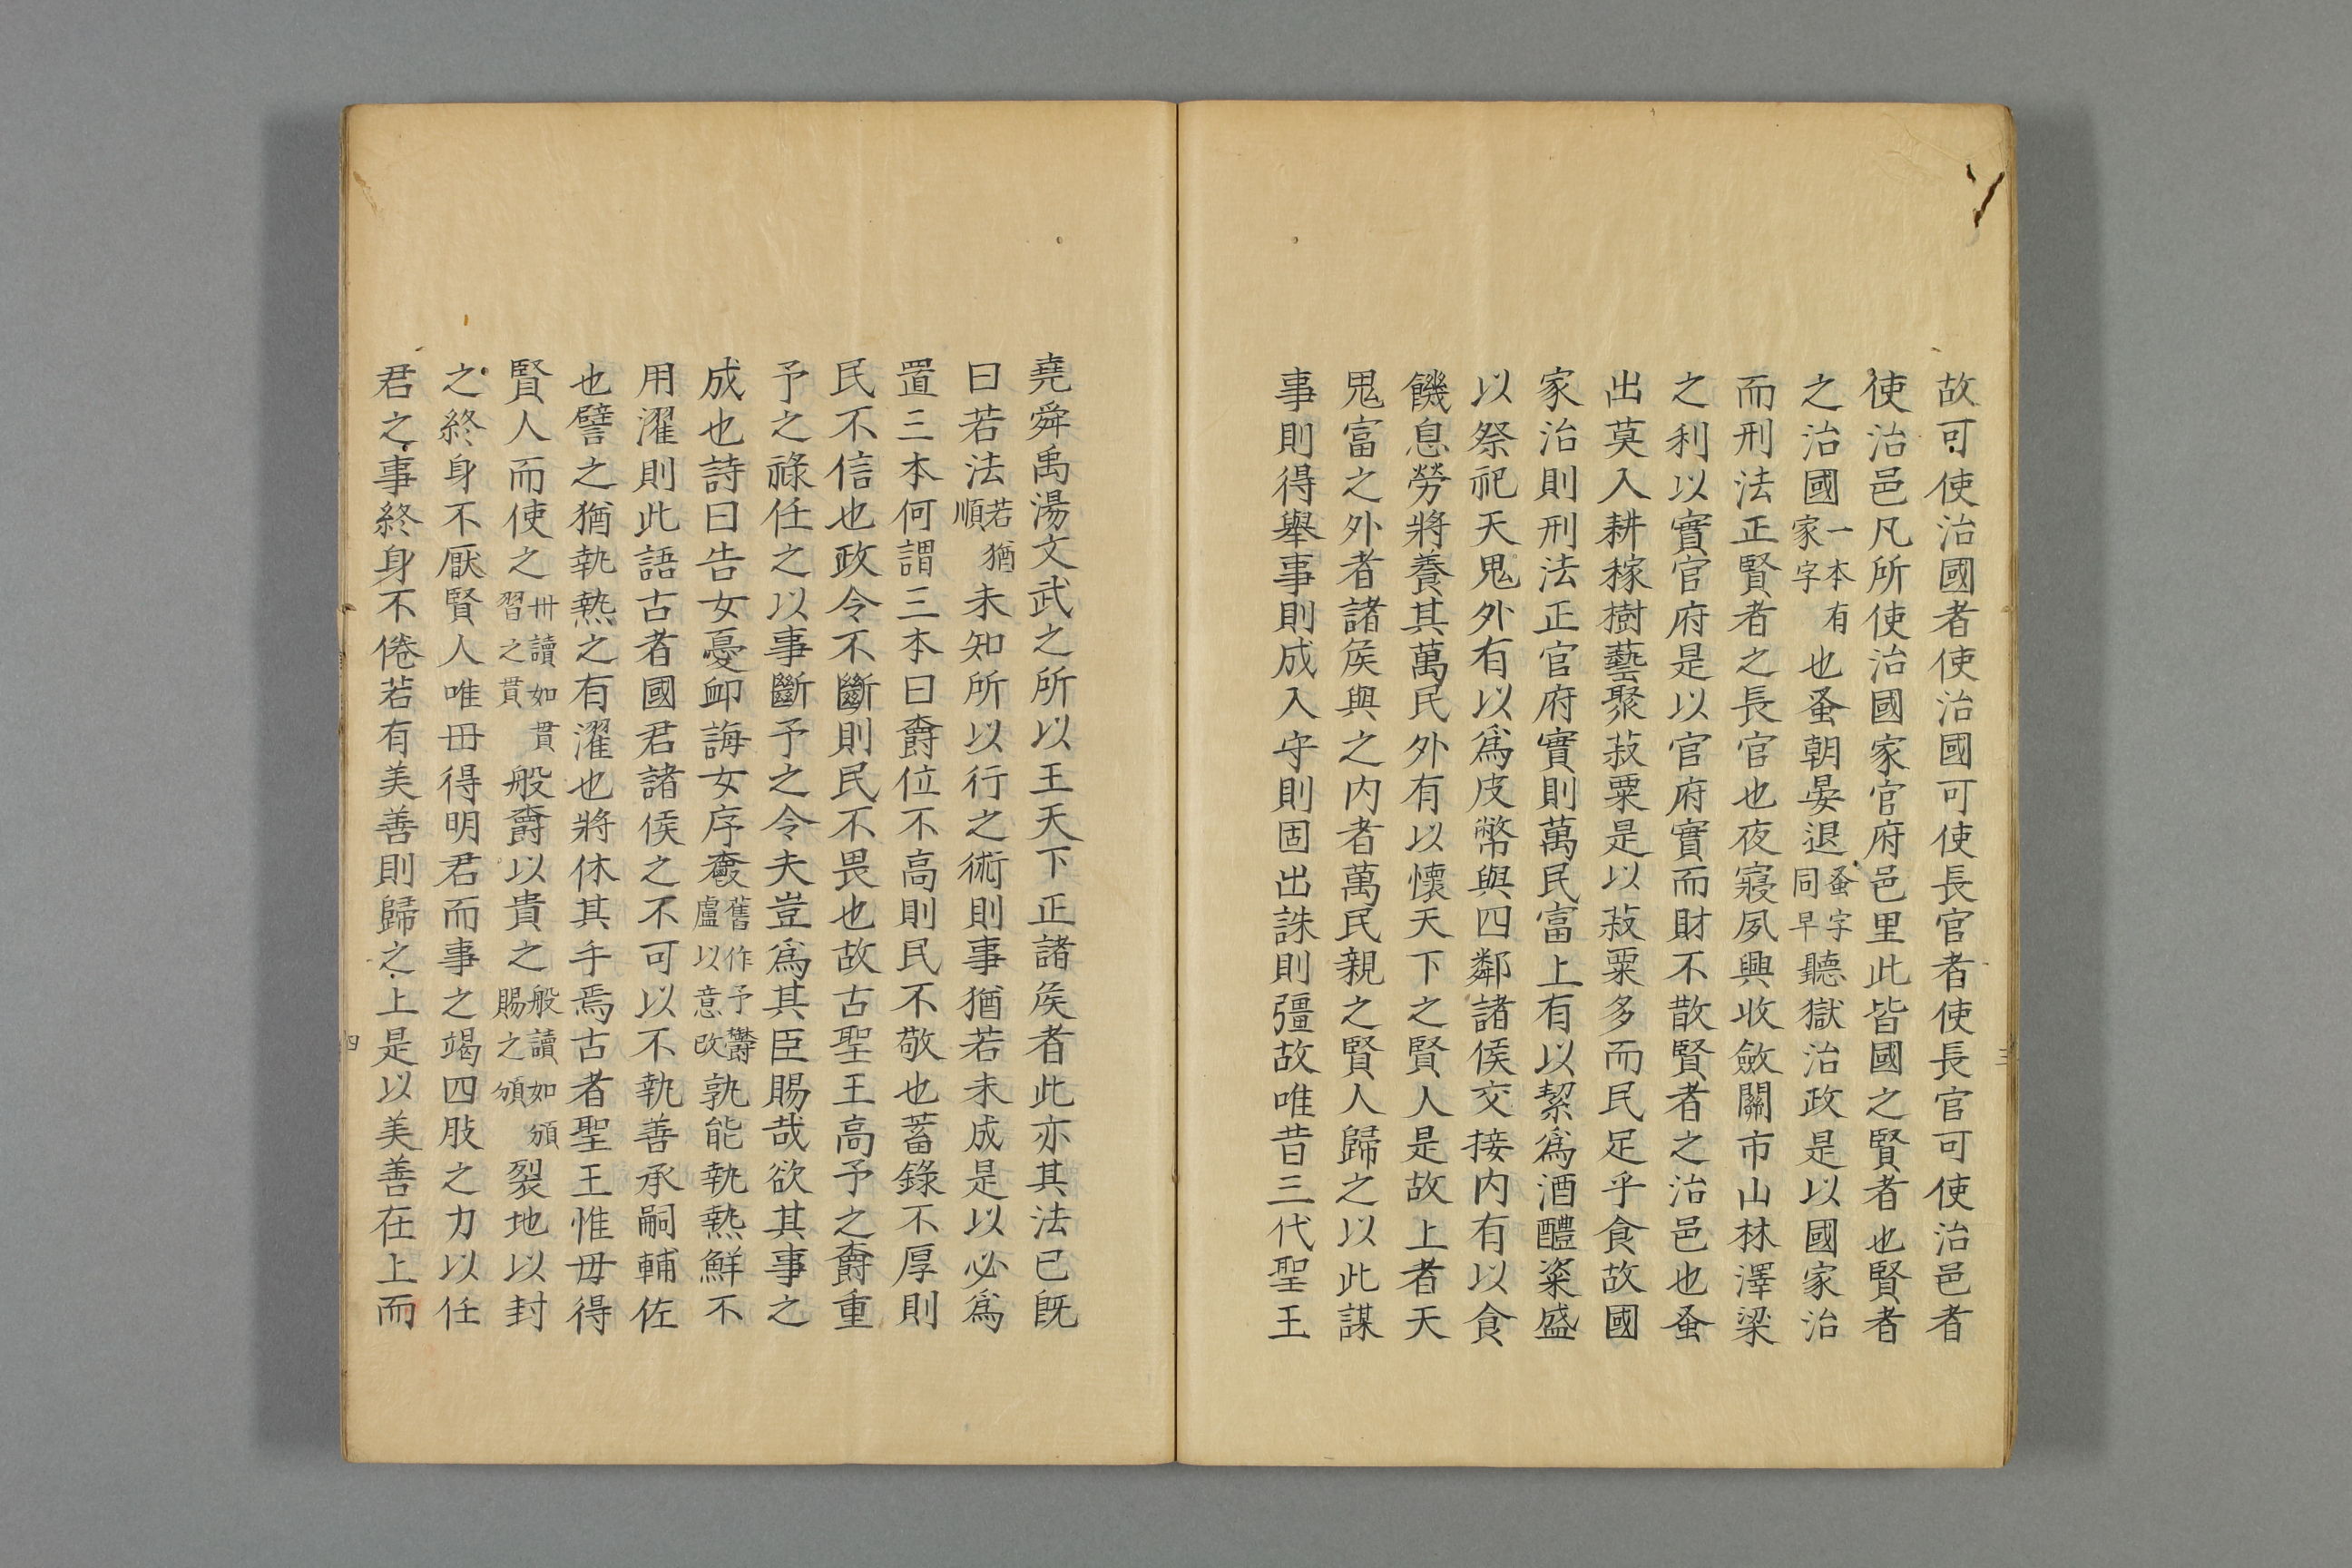 故可使治國者使治國可使長官者使長官可使治邑者
使治邑凡所使治國家官府邑里此皆國之賢者也賢者
之治國一本有家字也蚤朝晏退蚤字同早聽獄治政是以國家治
而刑法正賢者之長官也夜寢夙興收斂關市山林澤梁
之利以實官府是以官府實而財不散賢者之治邑也蚤
出莫入耕稼樹藝聚菽粟是以菽粟多而民足乎食故國
家治則刑法正官府實則萬民富上有以絜爲酒醴粢盛
以祭祀天鬼外有以爲皮幣與四鄰諸侯交接内有以食
饑息勞將養其萬民外有以懷天下之賢人是故上者天
鬼富之外者諸矦與之内者萬民親之賢人歸之以此謀
事則得舉事則成入守則固出誅則彊故唯昔三代聖王
三
堯舜禹湯文武之所以王天下正諸矦者此亦其法已旣
曰若法若猶順未知所以行之術則事猶若未成是以必爲
置三本何謂三本曰爵位不高則民不敬也蓄錄不厚則
民不信也政令不斷則民不畏也故古聖王高予之爵重
予之祿任之以事斷予之令夫豈爲其臣賜哉欲其事之
成也詩曰告女憂卹誨女序爵舊作予鬱盧以意改孰能執熱鮮不
用濯則此語古者國君諸侯之不可以不執善承嗣輔佐
也譬之猶執熱之有濯也將休其手焉古者聖王惟毋得
賢人而使之毌讀如貫習之貫般爵以貴之般讀如頒賜之頒裂地以封
之終身不厭賢人唯毌得明君而事之竭四肢之力以任
君之事終身不倦若有美善則歸之上是以美善在上而
四